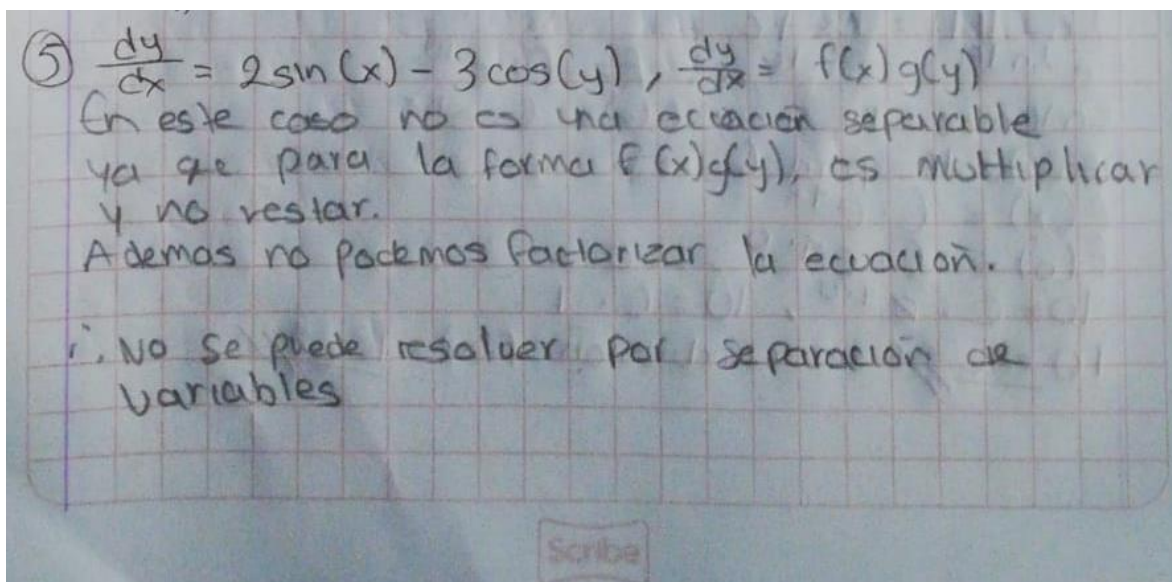 ⑤ dy/dx = 2 sin (x) - 3 cos (y) , dy/dx = f(x) g(y)
En este caso no es una ecuación separable
ya qe para la forma f (x)g(y), es multiplicar
y no restar.
Ademas no podemos factorizar la ecuación.
∴ No se puede resolver por separación de
variables
Scribe